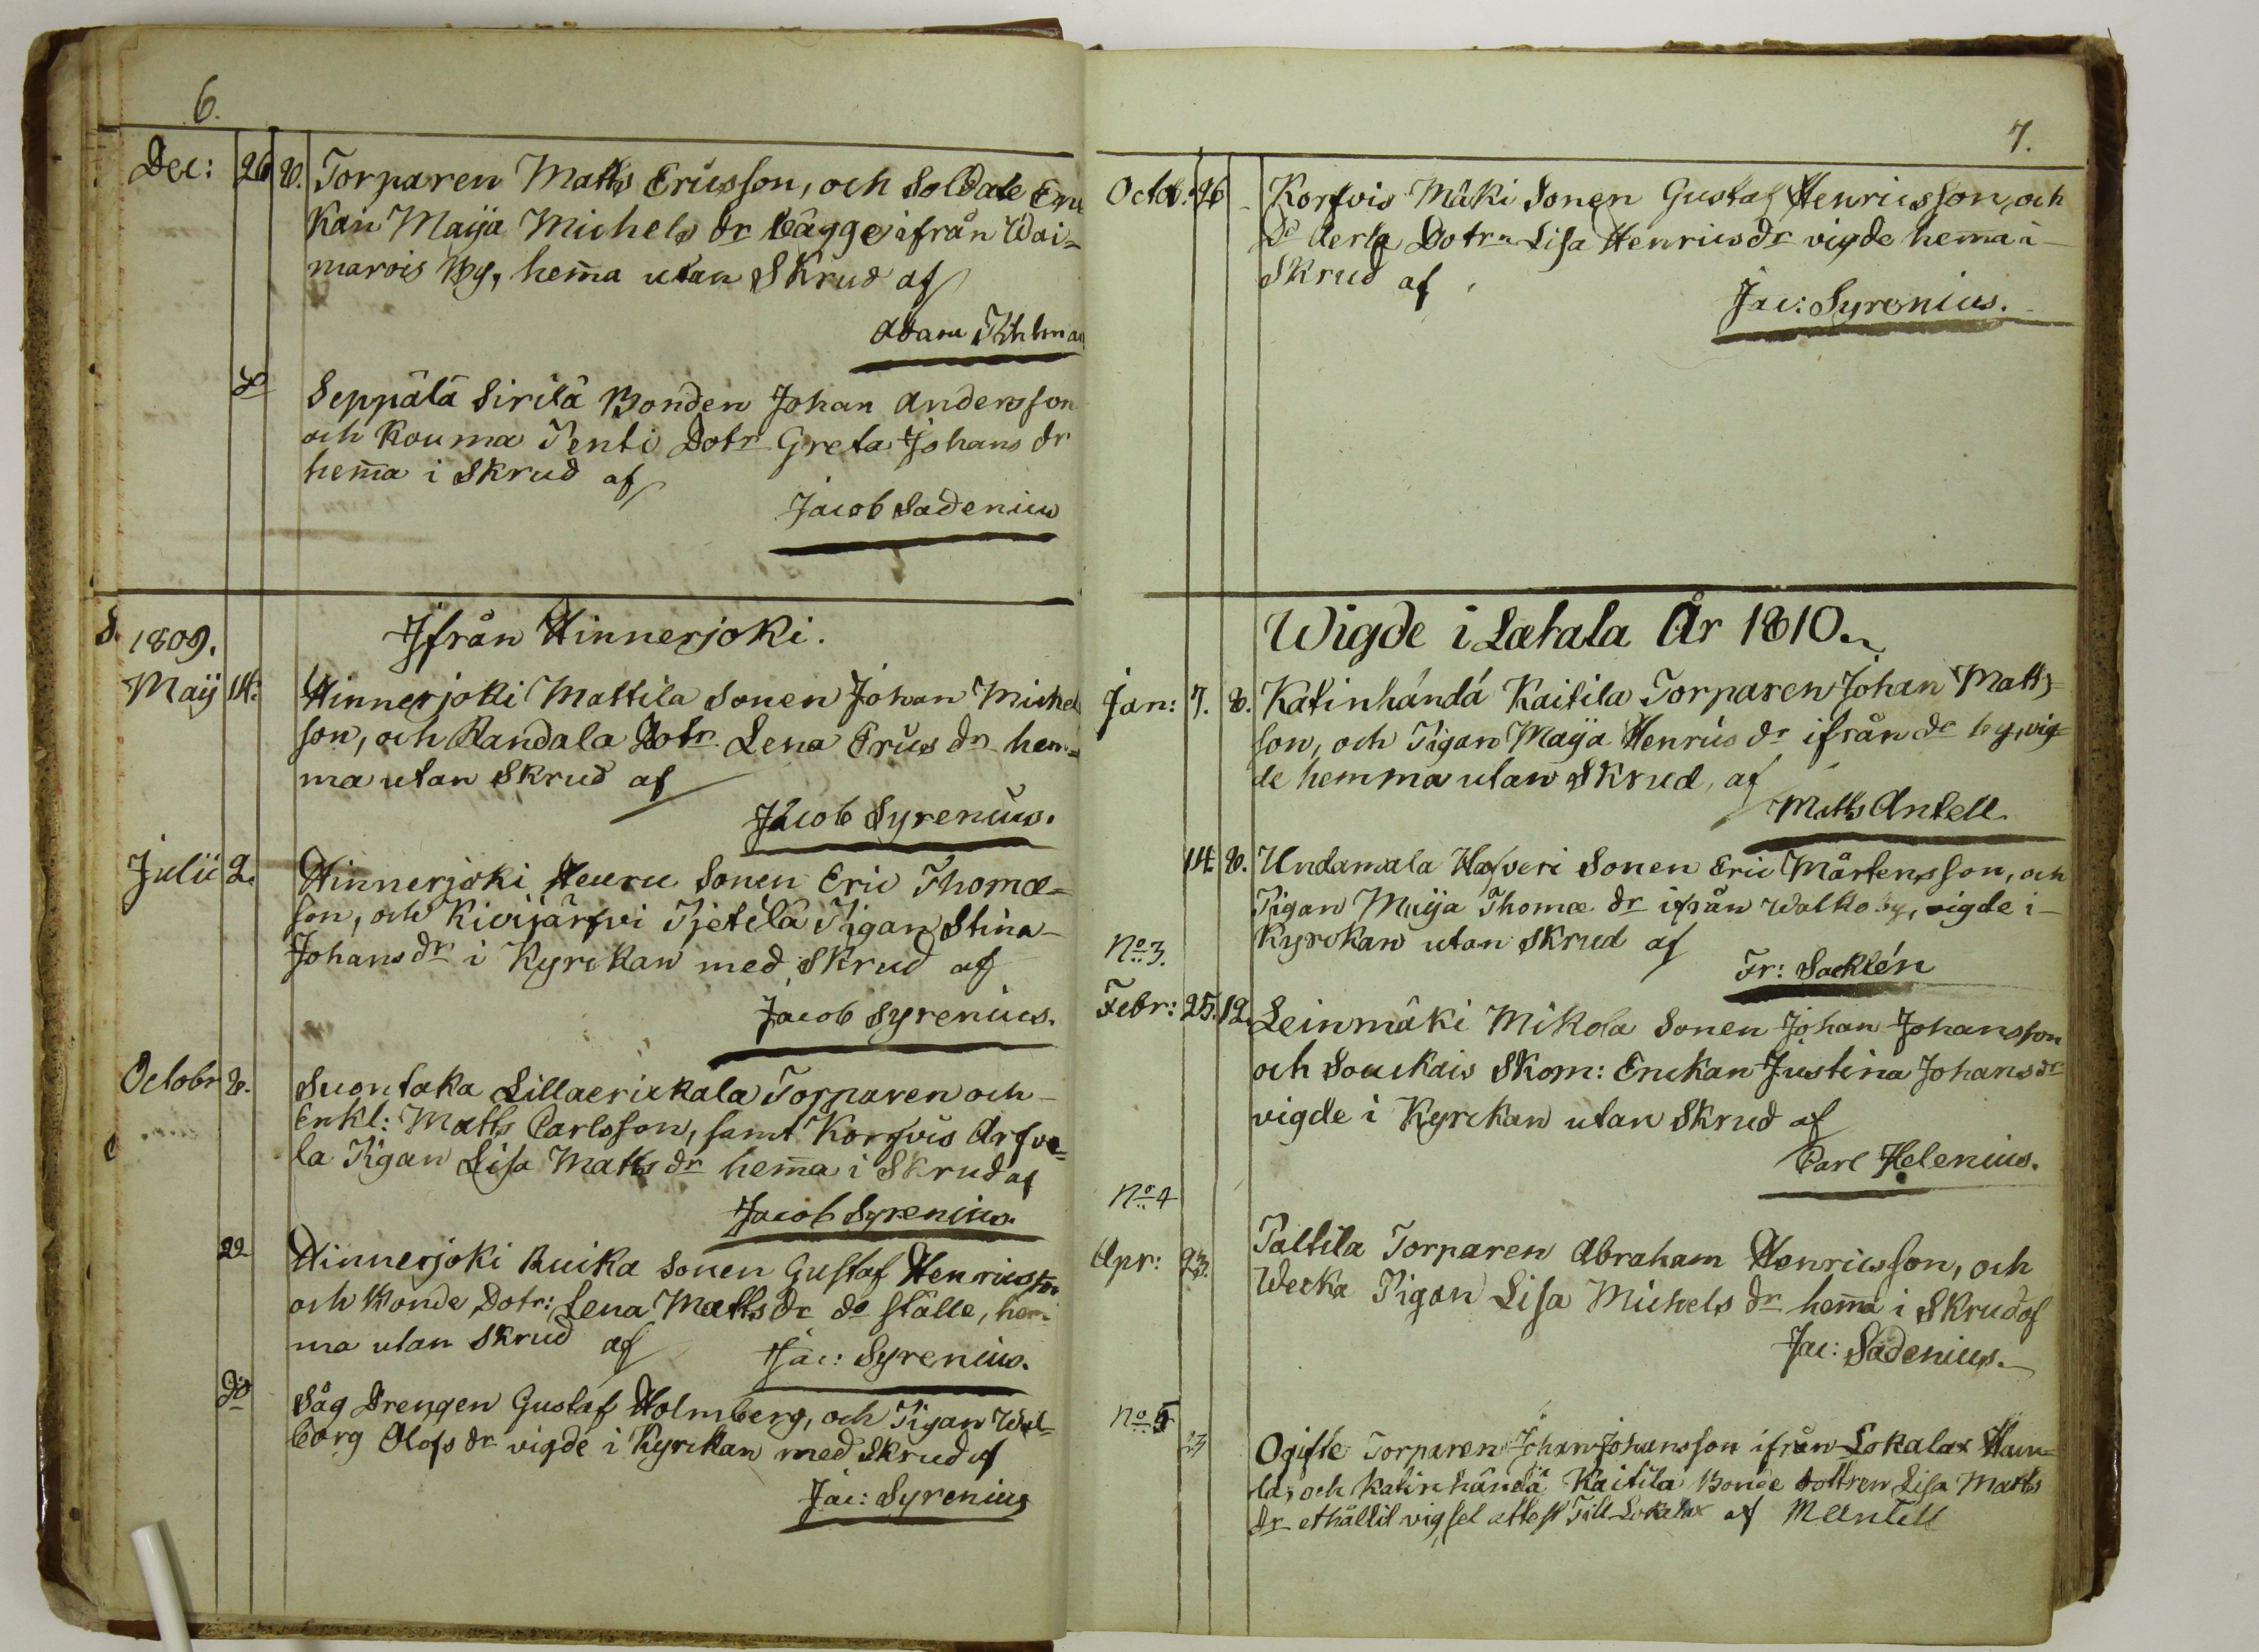 6.
Dec: 26 8. Torparen Matts Ericsson, och Soldate En
kan Maija Michels dr bägge ifrån Wai=
marois By, hem̄a utan Skrud af
Adam Kihlman
do Seppälä Sirilä Bonden Johan Andersson
och Kouma Penti Dotr Greta Johans dr
hem̄a i Skrud af
Jacob Sadenius
1809. Ifrån Hinnerjoki.
Maij 14. Hinnerjoki Mattila Sonen Johan Michel
son, och Randala Dotr Lena Erics dr hem=
ma utan Skrud af
Jacob Syrenius.
Julii 2. Hinnerjoki Heuru Sonen Eric Thomæ=
son, och Kivijärfvi Pietilä Pigan Stina
Johans dr i Kyrckan med Skrud af
Jacob Syrenius.
Octobr 8. Suontaka Lillaerickala Torparen och
Enkl: Matts Carlsson, samt Korfvis Arfve=
la Pigan Lisa Matts dr hem̄a i Skrud af
Jacob Syrenius.
22 Hinnerjoki Ruika Sonen Gustaf Henricsson
och Bonde Dotr: Lena Matts dr do ställe, hem
ma utan Skrud af
Jac: Syrenius.
do Såg Drengen Gustaf Holmberg, och Pigan Wal=
borg Olofs dr vigde i Kyrckan med Skrud af
Jac: Syrenius
7.
Octob: 26 Korfvis Mäki Sonen Gustaf Henricsson, och
do Aerla Dotrn Lisa Henrics dr vigde hem̄a i
Skrud af
Jac: Syrenius.
Wigde i Letala År 1810.
Jan: 7. 8. Katinhändä Kaitila Torparen Johan Matts=
son, och Pigan Maija Henrics dr ifrån do by, vig=
de hemma utan Skrud, af
Matts Antell.
14. 8. Undamala Hafveri Sonen Eric Mårtensson, och
Pigan Maija Thomæ dr ifrån Walko by, vigde i
Kyrckan utan Skrud af
Fr: Sacklén
No 3.
Febr: 25. 12. Leinmäki Mikola Sonen Johan Johansson
och Souckais Skom: Enckan Justina Johans dr
vigde i Kyrckan utan Skrud af
Carl Helenius.
No 4
Apr: 23. Paltila Torparen Abraham Henricsson, och
Wecka Pigan Lisa Michels dr hem̄a i Skrud af
Jac: Sadenius.
No 5
23 Ogifte Torparen Johan Johansson ifrån Lokalax Haun=
la, och Katinhändä Kaitila Bonde dottren Lisa Matts
dr erhållit vigsel attest Till Lokalax af M Antell